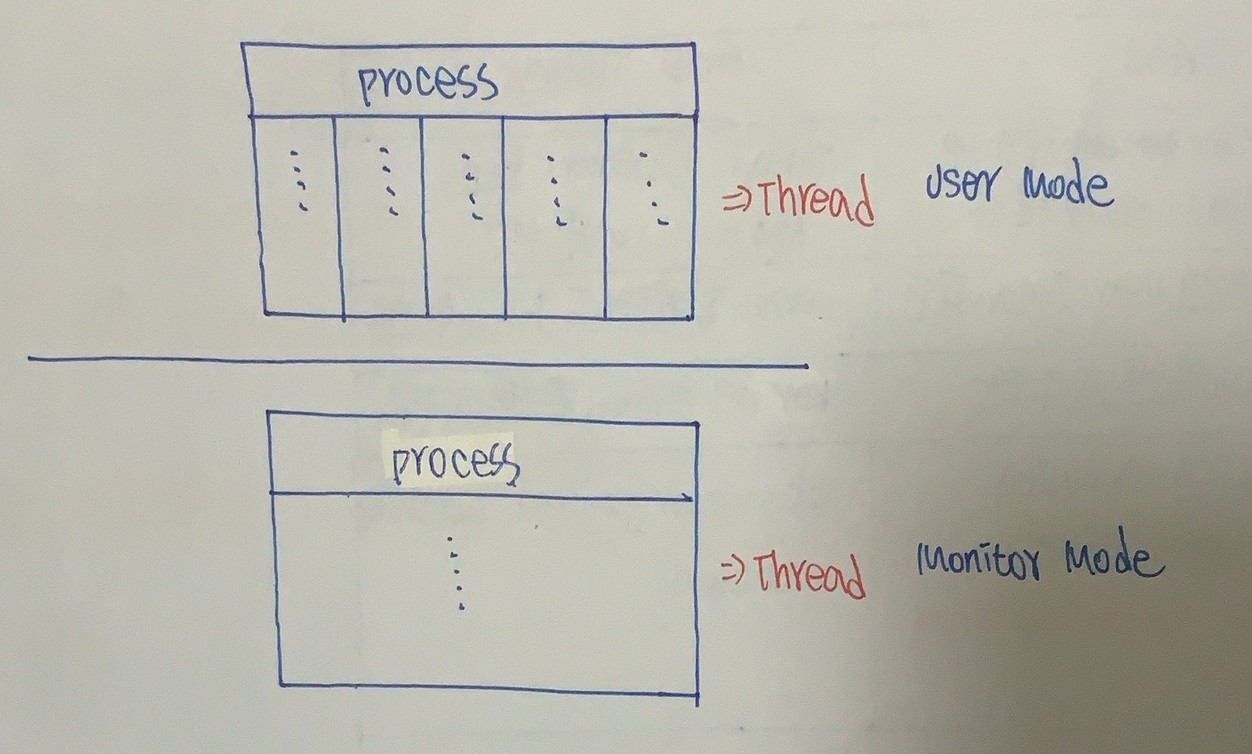 process
⇒ Thread User Mode
process
⇒ Thread Monitor Mode